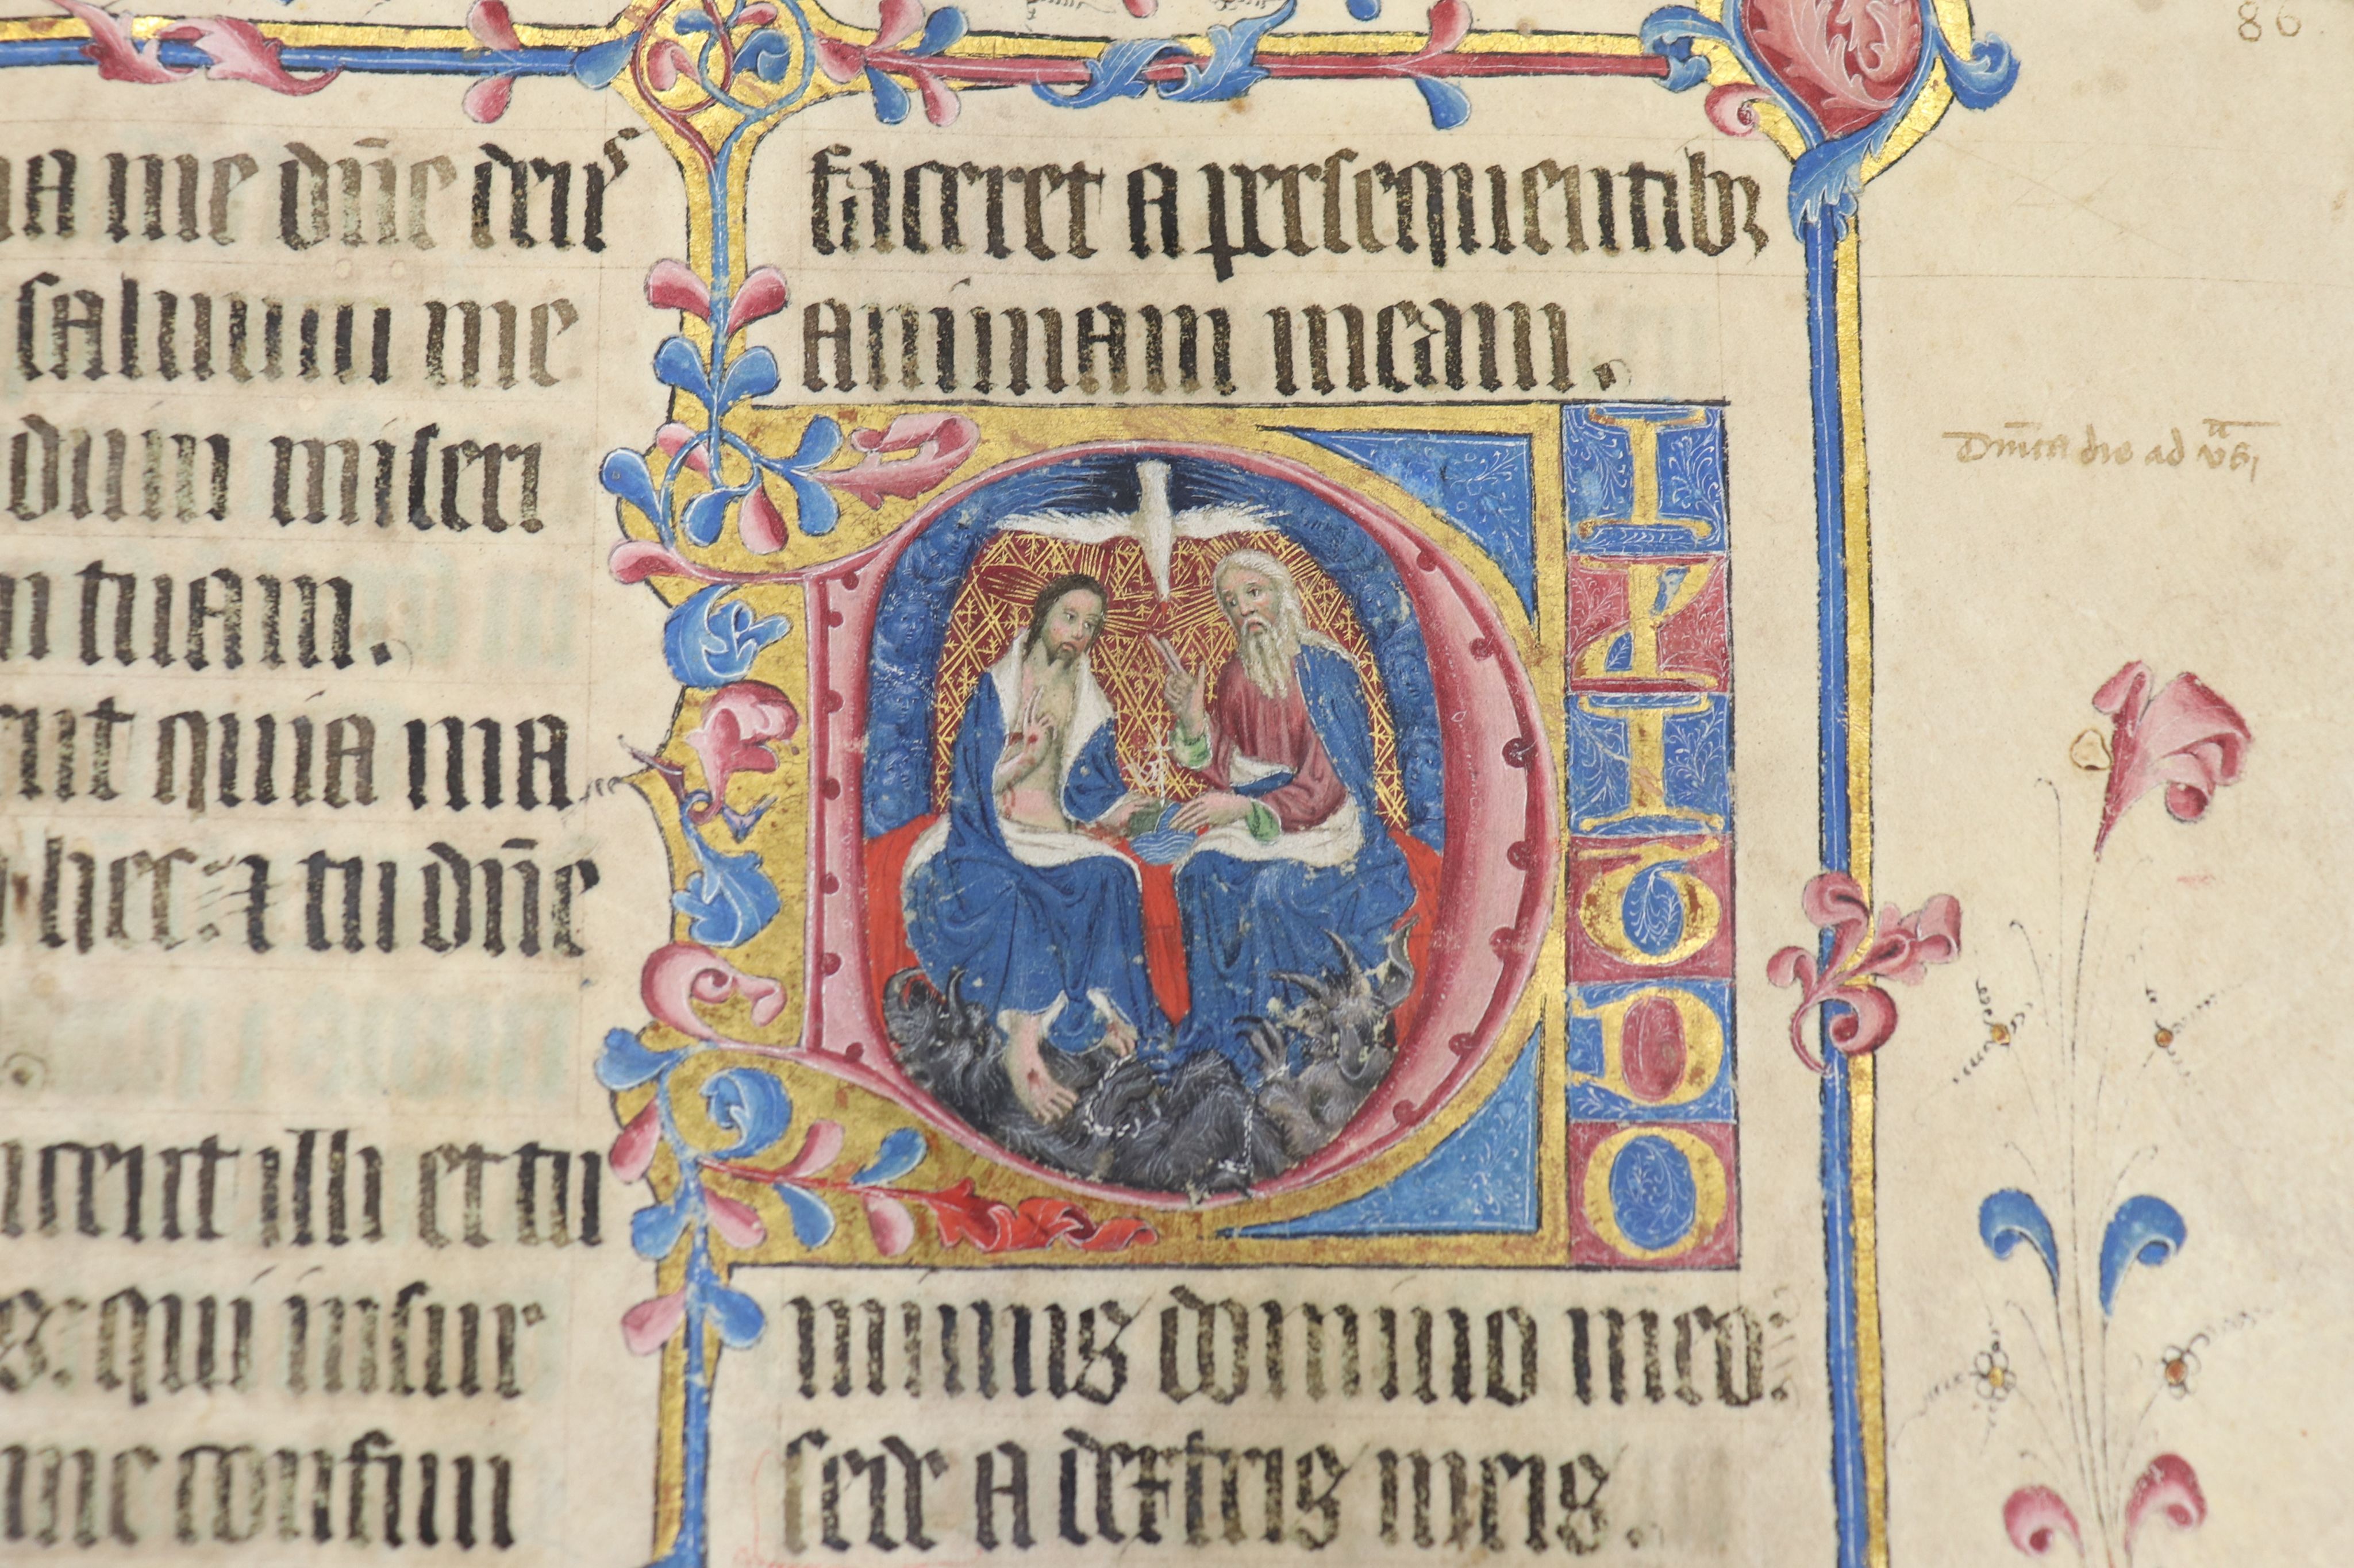 86
ua me dn̄e deus
saluum me
dum miseri
m tuam.
ent quia ma
hec: ⁊ tu dn̄e
icent illi et tu
s: qui insur
me confun
faceret a persequentibꝫ
animam meam.
DIXIT DO
minus domino meo:
sede a dextris meis.